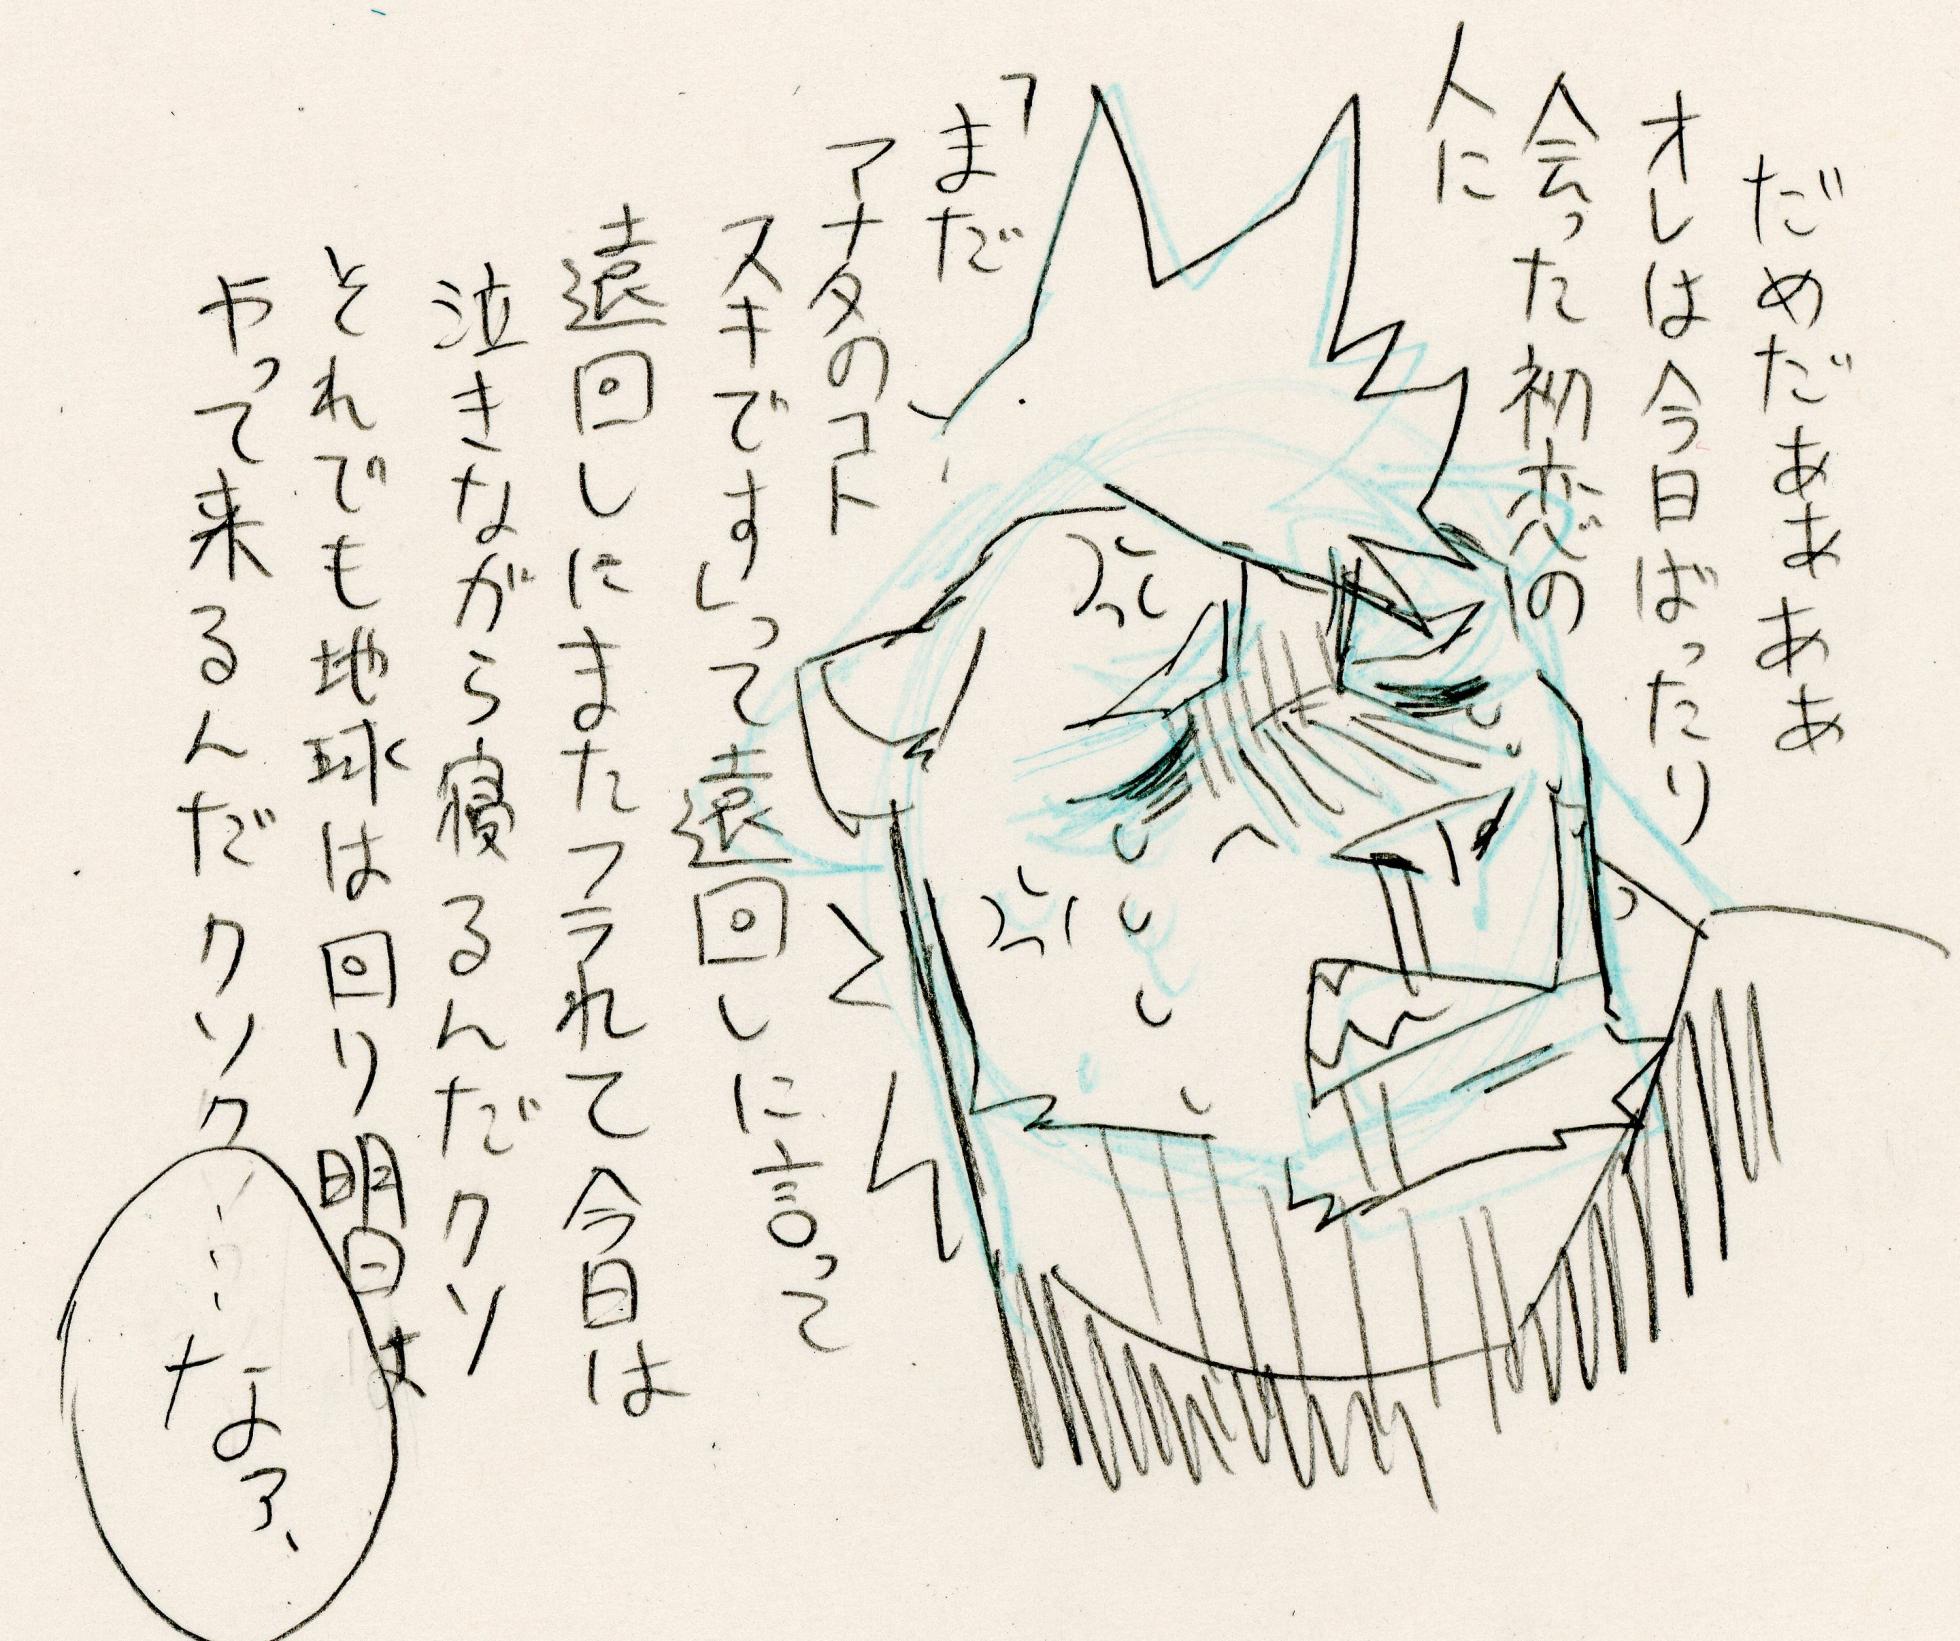 だめだあああぁ
オレは今日ばったり
会った初恋の
人に
「まだ
アナタのコト
スキです」って遠回しに言って
遠回しにまたフラれて今日は
泣きながら寝るんだクソ
それでも地球は回り明日は
やって来るんだクソク
……なァ、